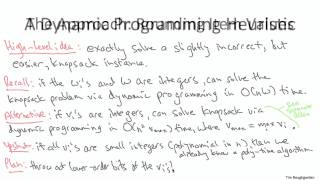 High-level idea: exactly solve a slightly incorrect, but
easier, knapsack instance.
Recall: if the wᵢ's and W are integers, can solve the
knapsack problem via dynamic programming in O(nW) time.
Alternative: if vᵢ's are integers, can solve knapsack via
dynamic programming in O(n² vmax) time, where vmax = max vᵢ.
see separate video
Upshot: if all vᵢ's are small integers (polynomial in n), then we
already know a poly-time algorithm
Plan: throw out lower-order bits of the vᵢ's!
Tim Roughgarden